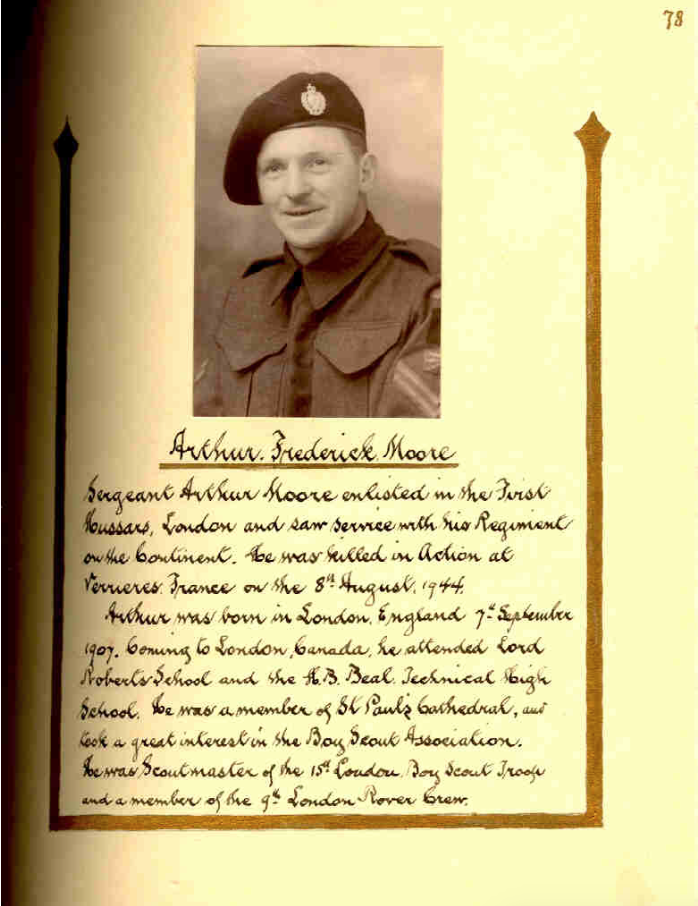 78
Arthur. Frederick. Moore
Sergeant Arthur Moore enlisted in the First
Hussars, London and saw service with his Regiment
on the Continent. He was killed in Action at
Verrieres. France on the 8th August. 1944.
Arthur was born in London, England 7th September
1907. Coming to London, Canada, he attended Lord
Roberts School and the H.B. Beal. Technical High
School. He was a member of St Paul's Cathedral, and
took a great interest in the Boy Scout Association.
He was Scoutmaster of the 15th London. Boy Scout Troop
and a member of the 9th London Rover Crew.